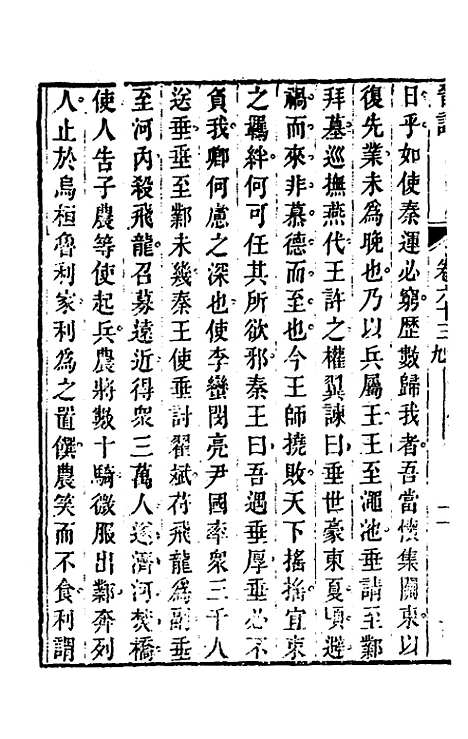 晉記　卷六十三　九
日乎如使秦運必窮歴數歸我者吾當懷集關東以
復先業未爲晚也乃以兵屬王王至澠池垂請至鄴
拜墓巡撫燕代王許之權翼諫曰垂世豪東夏頃避
禍而來非慕德而至也今王師撓敗天下搖搖宜束
之羈絆何可任其所欲邪秦王曰吾遇垂厚垂必不
負我卿何慮之深也使李蠻閔亮尹國率衆三千人
送垂垂至鄴未幾秦王使垂討翟斌苻飛龍爲副垂
至河內殺飛龍召募遠近得衆三萬人遂濟河焚橋
使人告子農等使起兵農將數十騎微服出鄴奔列
人止於烏桓魯利家利爲之置饌農笑而不食利謂